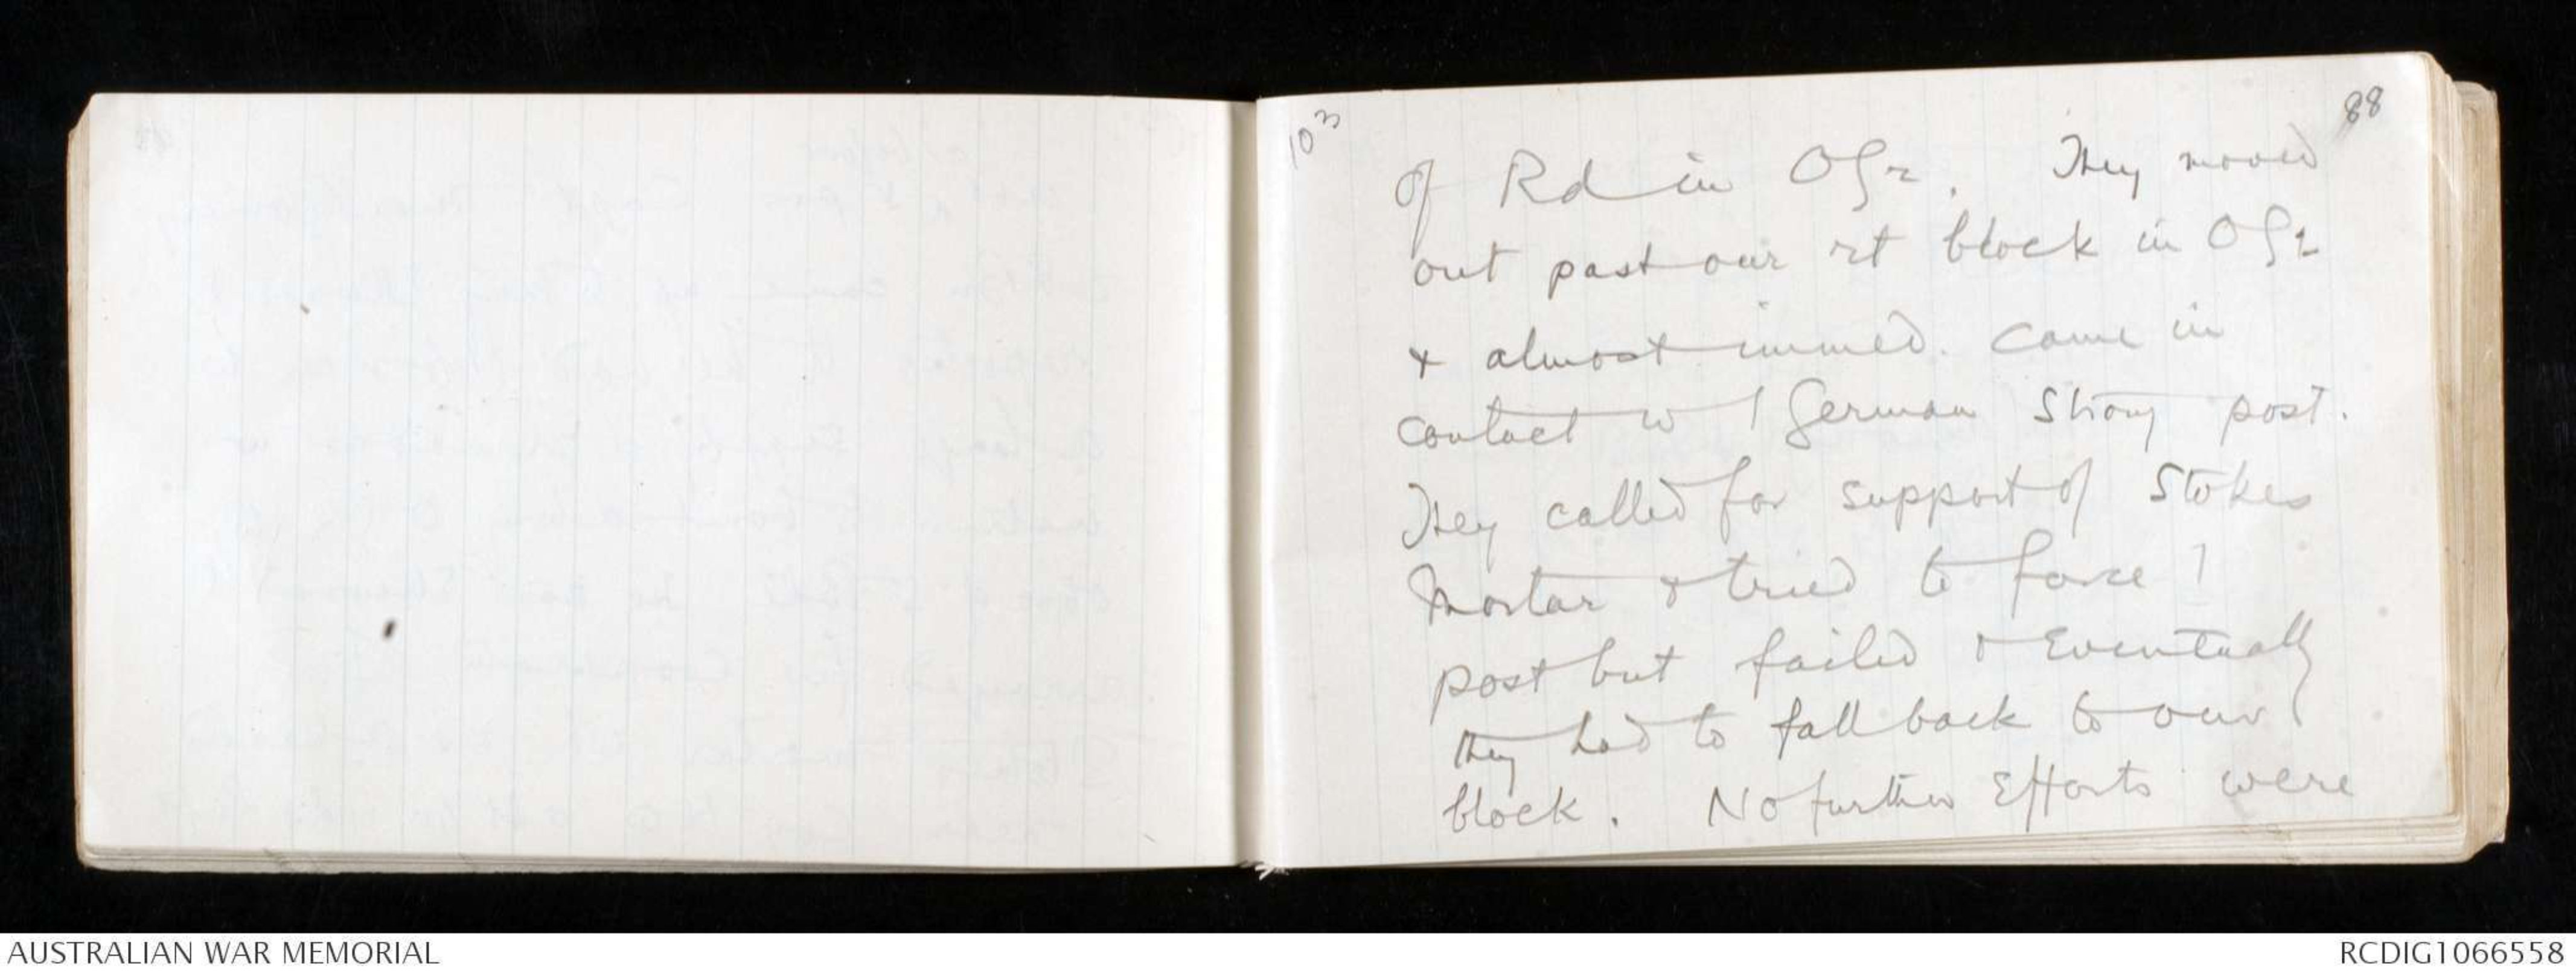 103
88
of Rd in OG2. They moved
out past our rt block in OG2
& almost immed. came in
contact w 1 German strong post.
They called for support of Stokes
Mortar & tried to force 1
post but failed & eventually
they had to fall back to our
block. No further efforts were
AUSTRALIAN WAR MEMORIAL
RCDIG1066558